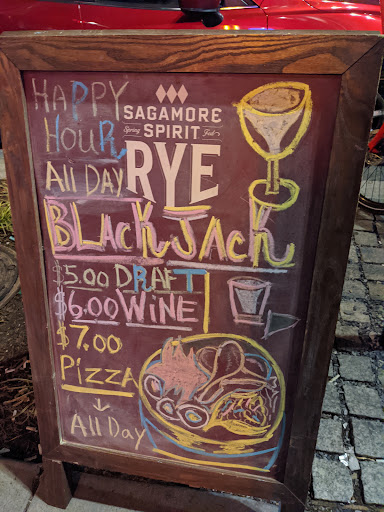 HAPPY
HOUR
All DAY
SAGAMORE
Spring SPIRIT Fed
RYE
BLACKJACK
$5.00 DRAFT
$6.00 WiNE
$7.00
PizzA
All DAY